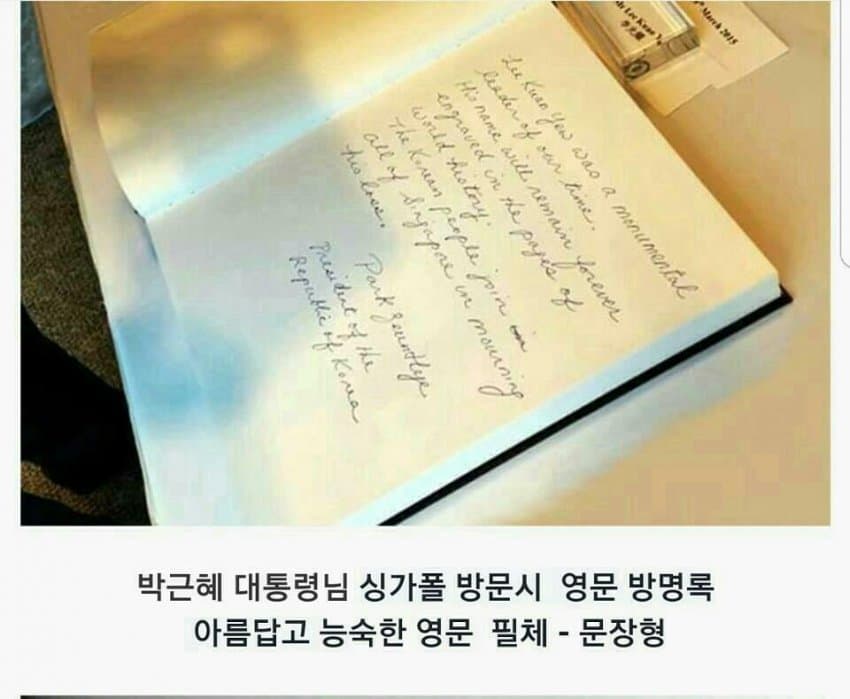 Lee Kuan Yew was a monumental
leader of our time.
His name will remain forever
engraved in the pages of
world history.
The Korean people join in
all of Singapore in mourning
his loss.
Park Geunhye
President of the
Republic of Korea
Lee Kuan
March 2015
박근혜 대통령님 싱가폴 방문시 영문 방명록
아름답고 능숙한 영문 필체 - 문장형